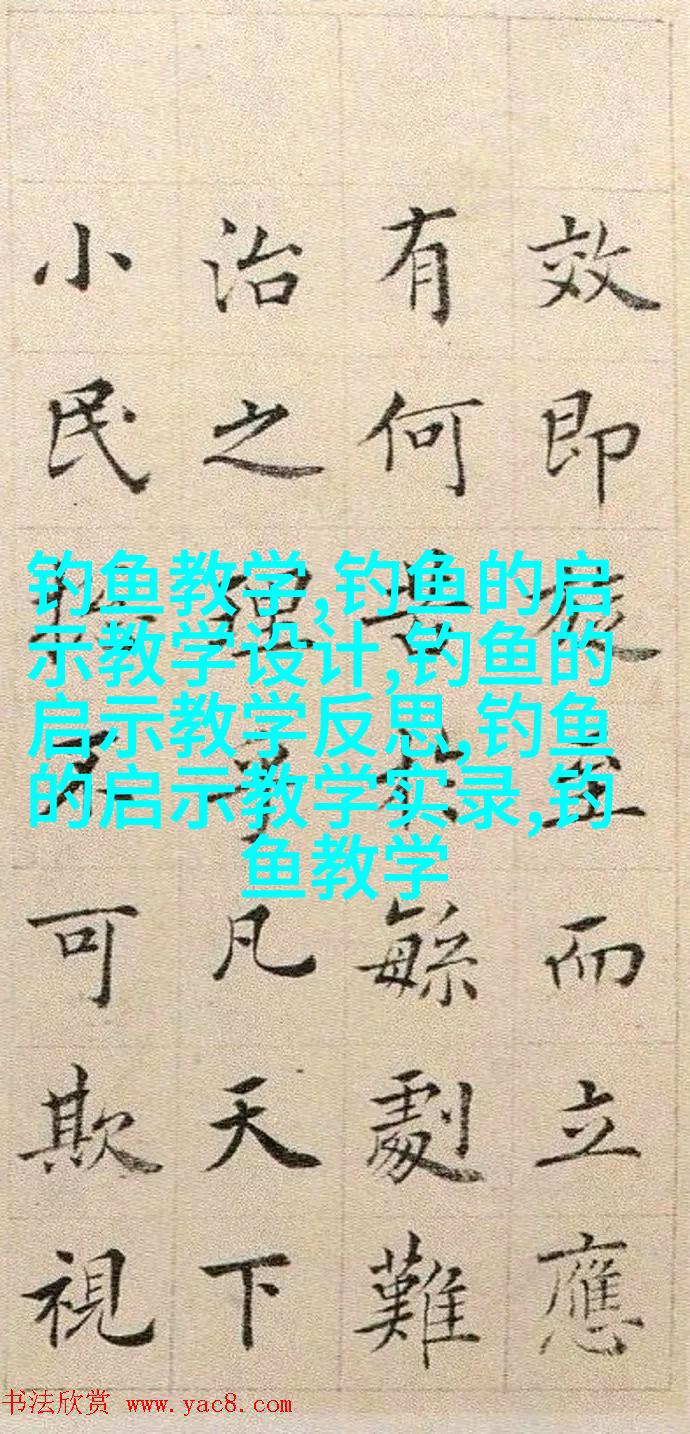 效即至而立應
有何緐劇難
治之理乎凡天下
小民不可欺視
钓鱼教学,钓鱼的启
示教学设计,钓鱼的
启示教学反思,钓鱼
的启示教学实录,钓
鱼教学
书法欣赏 www.yac8.com